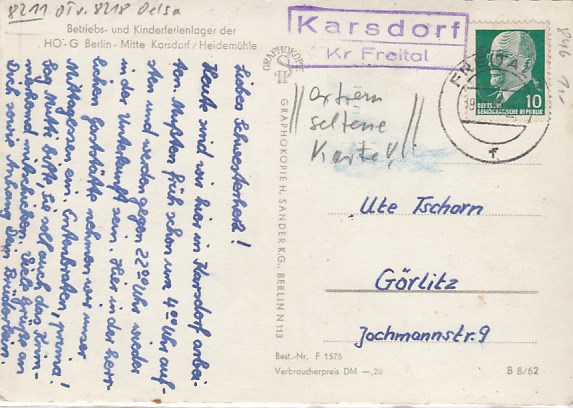 8211 OT v. 8218 Oelsa
Betriebs- und Kinderferienlager der
HO-G Berlin - Mitte Karsdorf/Heidemühle
Liebes Schwesterherz!
Heute sind wir hier in Karsdorf ange-
kom. Mußten früh schon um 4 00 Uhr auf-
stehn und werden gegen 22 00 Uhr wieder
in der Unterkunft sein. Hier in der herr-
lichen Gaststätte nehmen wir unser
Mittagessen ein. Entenbraten, prima!
Sag Mutti bitte, sie soll auch das
mit schicken. Viele Grüße an
Dich sowie Anhang Dein Brüderlein.
GRAPHOKOPIE
GRAPHOKOPIE H. SANDER K.G., BERLIN N 113
Karsdorf
Kr Freital
FREITAL
DEUTSCHE
DEMOKRATISCHE REPUBLIK
10
f
846 1.-
extrem
seltene
Karte!!
Ute Tschorn
Görlitz
Jochmannstr. 9
Best.-Nr. F 1575
Verbraucherpreis DM —,20
B 8/62